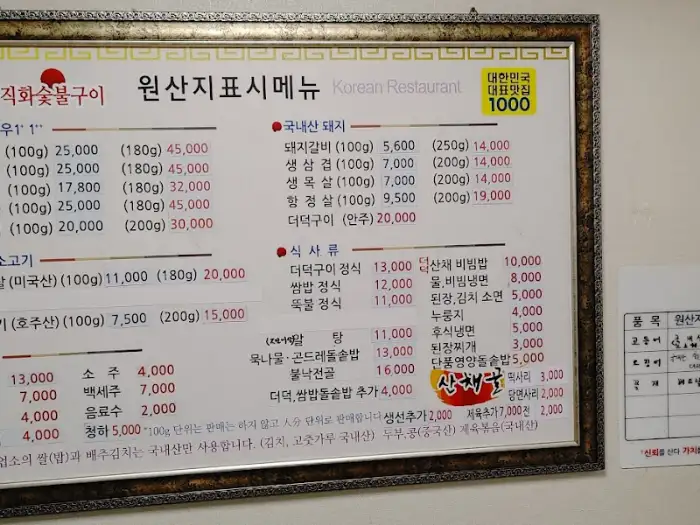 직화숯불구이 원산지표시메뉴 Korean Restaurant
대한민국
대표맛집
1000
우1+ 1++
(100g) 25,000 (180g) 45,000
(100g) 25,000 (180g) 45,000
(100g) 17,800 (180g) 32,000
(100g) 25,000 (180g) 45,000
(100g) 20,000 (200g) 30,000
소고기
(미국산) (100g) 11,000 (180g) 20,000
(호주산) (100g) 7,500 (200g) 15,000
13,000 소 주 4,000
7,000 백세주 7,000
4,000 음료수 2,000
4,000 청하 5,000
국내산 돼지
돼지갈비 (100g) 5,600 (250g) 14,000
생 삼 겹 (100g) 7,000 (200g) 14,000
생 목 살 (100g) 7,000 (200g) 14,000
항 정 살 (100g) 9,500 (200g) 19,000
더덕구이 (안주) 20,000
식 사 류
더덕구이 정식 13,000
쌈밥 정식 12,000
뚝불 정식 11,000
알 탕 11,000
묵나물·곤드레돌솥밥 13,000
불낙전골 16,000
더덕,쌈밥돌솥밥 추가 4,000
산채 비빔밥 10,000
물.비빔냉면 8,000
된장,김치 소면 5,000
누룽지 4,000
후식냉면 5,000
된장찌개 3,000
단품영양돌솥밥 5,000
산채골
떡사리 3,000
당면사리 2,000
생선추가 2,000 제육추가 7,000 전 2,000
*100g 단위는 판매는 하지 않고 人分 단위로 판매합니다
두부,콩(중국산) 제육볶음(국내산)
업소의 쌀(밥)과 배추김치는 국내산만 사용합니다. (김치, 고춧가루 국내산)
품 목 원산지
고등어
*신뢰를 산다 가치를